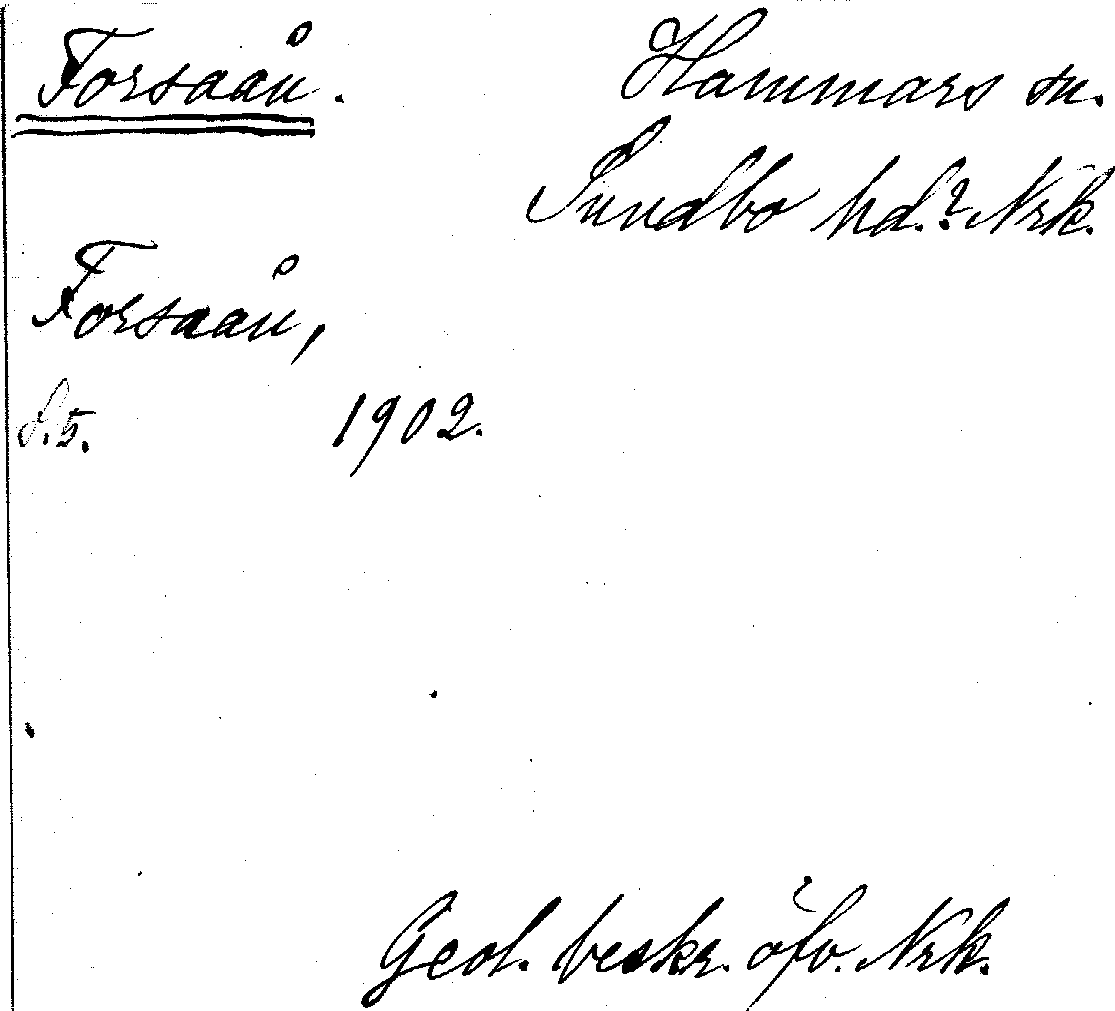 Forsaån. Hammars sn.
Sundbo hd.? Nrk.
Forsaån,
s. 5. 1902.
Geol. beskr. öfv. Nrk.